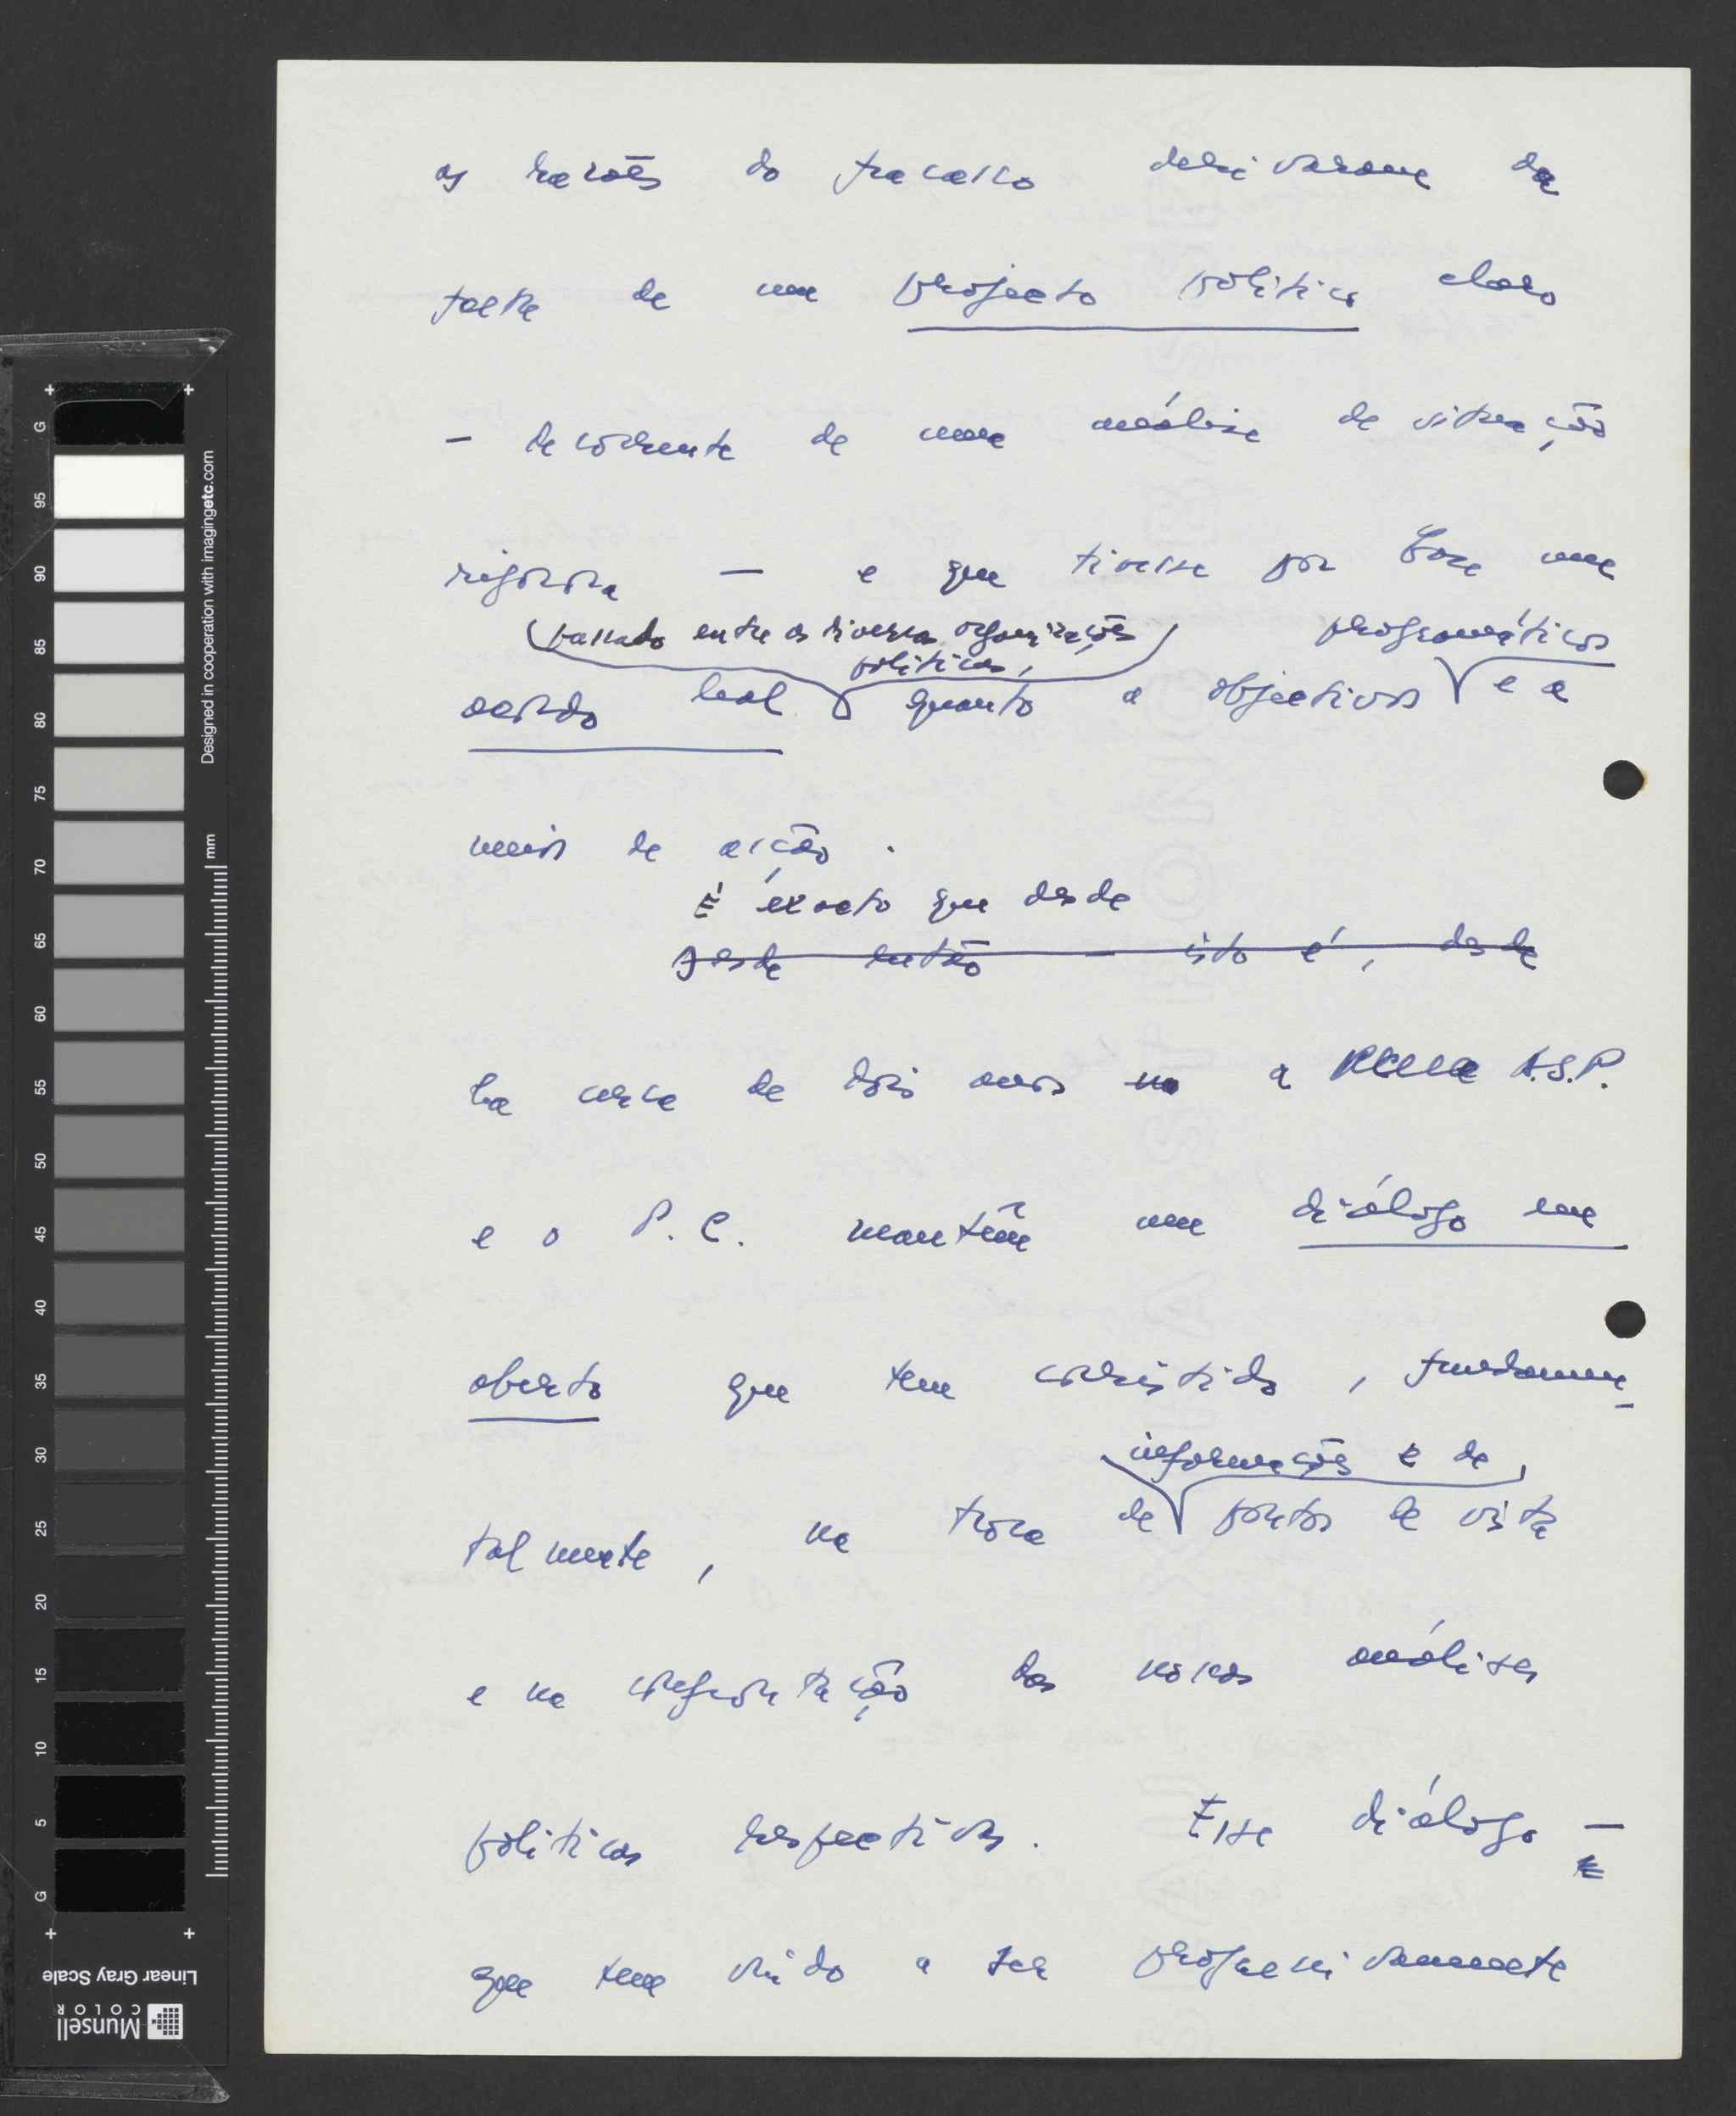 as razões do fracasso derivaram da
falta de um projecto político claro
– decorrente de uma análise de situação
rigorosa — e que tivesse por base um
(passado entre as diversas organizações programáticos
políticas,
acordo leal quanto a objectivos e a
meios de acção.
É exacto que desde
Desde então – isto é, desde
há cerca de dois anos a A.S.P.
e o P.C. mantêm um diálogo em
aberto que tem consistido, fundamen-
informações e de
talmente, na troca de pontos de vista
e na confrontação das nossas análises
políticas respectivas. Esse diálogo –
que tem vindo a ser progressivamente
G 95 90 85 80 75 70 65 60 55 50 45 40 35 30 25 20 15 10 5 G
Designed in cooperation with imagingetc.com
mm
Linear Gray Scale
Munsell
COLOR